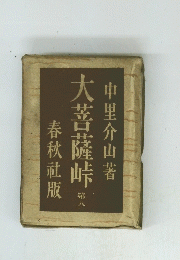 中里介山著
大菩薩峠
第八
春秋社版